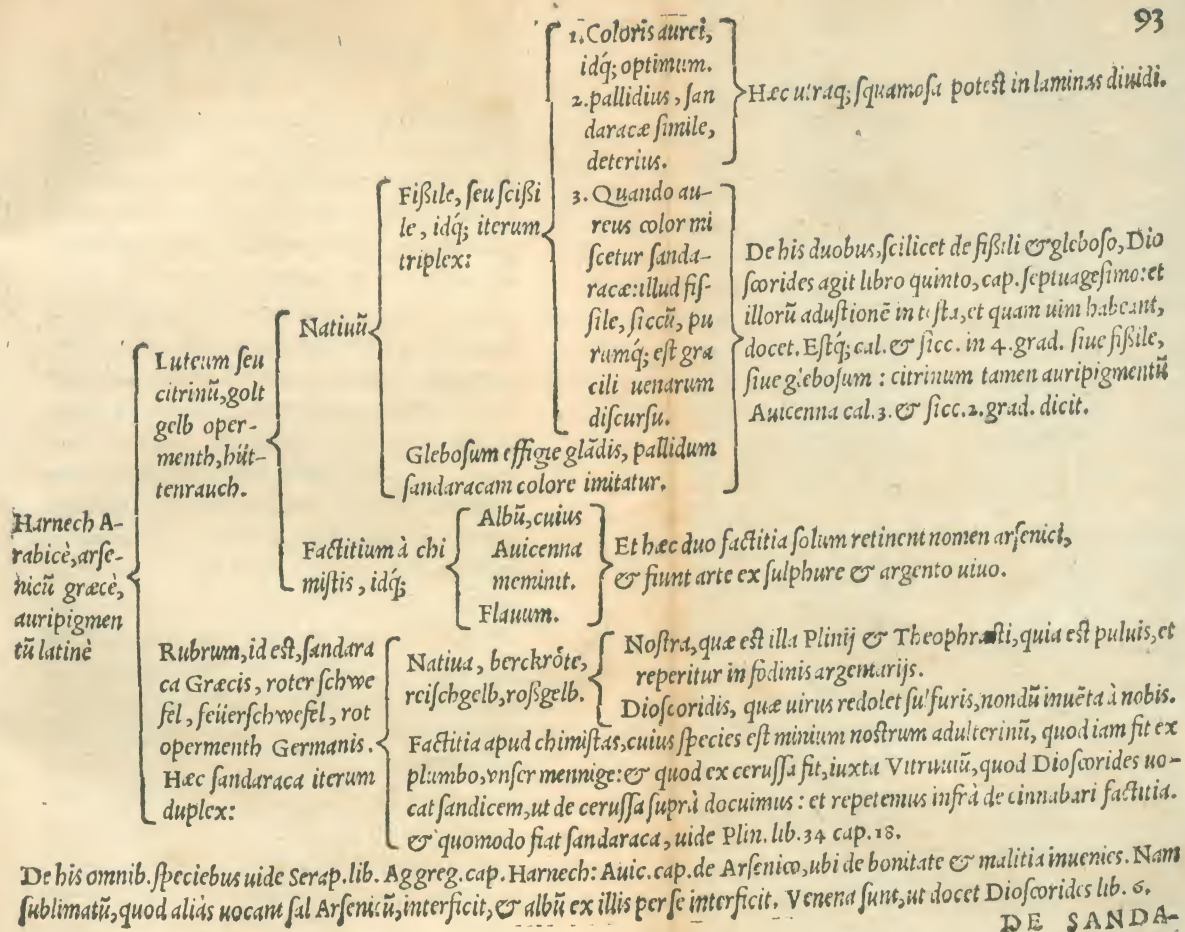 93
Harnech A-
rabicè, arse-
nicũ græcè,
auripigmen
tũ latinè
Luteum seu
citrinũ, golt
gelb oper-
menth, hüt-
tenrauch.
Natiuũ
Fißile, seu scißi
le, idq́; iterum
triplex:
1. Coloris aurei,
idq́; optimum.
2. pallidius, san
daracæ simile,
deterius.
Hæc utraq; squamosa potest in laminas diuidi.
3. Quando au-
reus color mi
scetur sanda-
racæ: illud fis-
sile, siccũ, pu
rumq́; est gra
cili uenarum
discursu.
Glebosum effigie glãdis, pallidum
sandaracam colore imitatur.
De his duobus, scilicet de fißili & gleboso, Dio
scorides agit libro quinto, cap. septuagesimo: et
illorũ adustionẽ in testa, et quam uim habeant,
docet. Estq́; cal. & sicc. in 4. grad. siue fißile,
siue glebosum: citrinum tamen auripigmentũ
Auicenna cal. 3. & sicc. 2. grad. dicit.
Factitium à chi
mistis, idq́;
Albũ, cuius
Auicenna
meminit.
Flauum.
Et hæc duo factitia solum retinent nomen arsenici,
& fiunt arte ex sulphure & argento uiuo.
Rubrum, id est, sandara
ca Græcis, roter schwe
fel, feüerschwefel, rot
opermenth Germanis.
Hæc sandaraca iterum
duplex:
Natiua, berckröte,
reischgelb, roßgelb.
Nostra, quæ est illa Plinij & Theophrasti, quia est puluis, et
reperitur in fodinis argentarijs.
Dioscoridis, quæ uirus redolet sulfuris, nondũ inuẽta à nobis.
Factitia apud chimistas, cuius species est minium nostrum adulterinũ, quod iam fit ex
plumbo, vnser mennige: & quod ex cerussa fit, iuxta Vitruuiũ, quod Dioscorides uo-
cat sandicem, ut de cerussa suprà docuimus: et repetemus infrà de cinnabari factitia.
& quomodo fiat sandaraca, uide Plin. lib. 34 cap. 18.
De his omnib. speciebus uide Serap. lib. Aggreg. cap. Harnech: Auic. cap. de Arsenico, ubi de bonitate & malitia inuenies. Nam
sublimatũ, quod aliàs uocant sal Arsenicũ, interficit, & albũ ex illis per se interficit. Venena sunt, ut docet Dioscorides lib. 6.
DE SANDA-